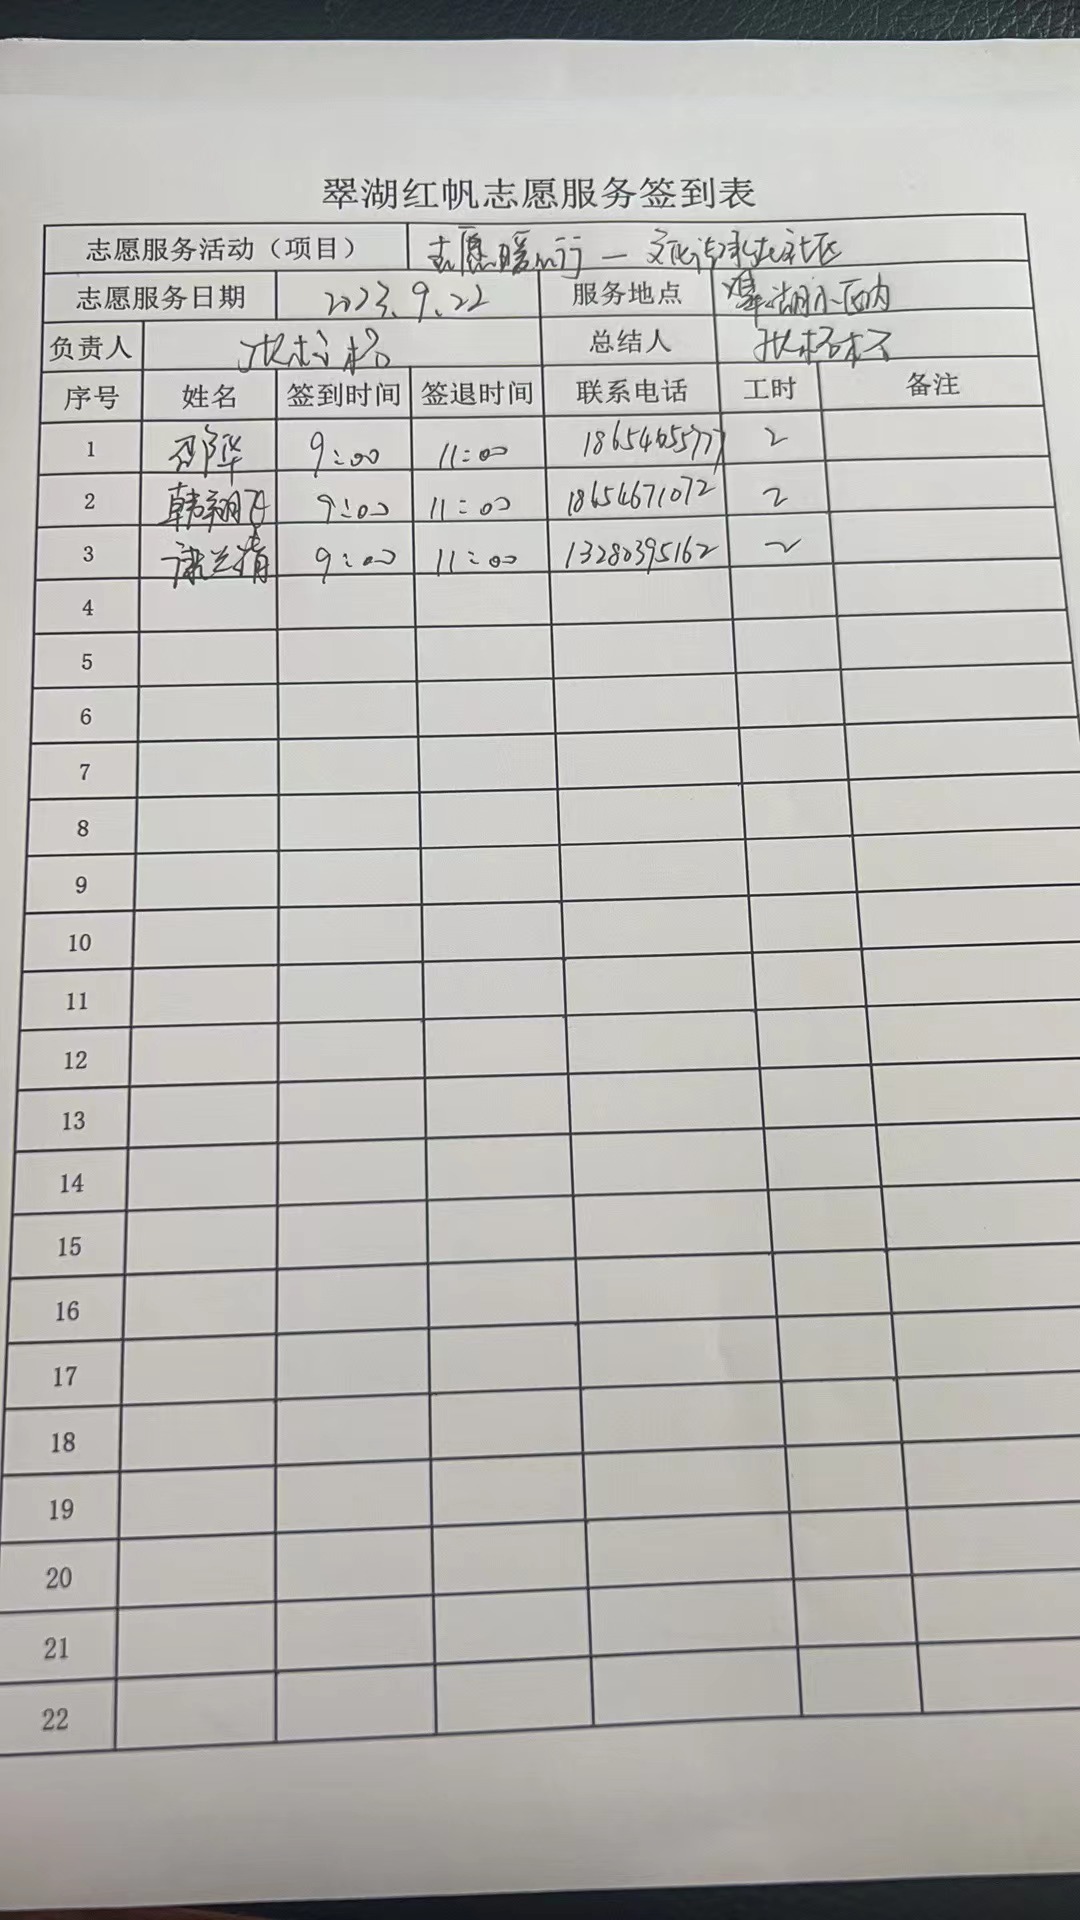 翠湖红帆志愿服务签到表
志愿服务活动（项目） 志愿暖心行 — 文化传承走社区
志愿服务日期 2023.9.22 服务地点 翠湖小区内
负责人 总结人
序号 姓名 签到时间 签退时间 联系电话 工时 备注
1 邵华 9:00 11:00 18654655777 2
2 韩翔飞 9:00 11:00 18654671072 2
3 9:00 11:00 13280395162 2
4
5
6
7
8
9
10
11
12
13
14
15
16
17
18
19
20
21
22